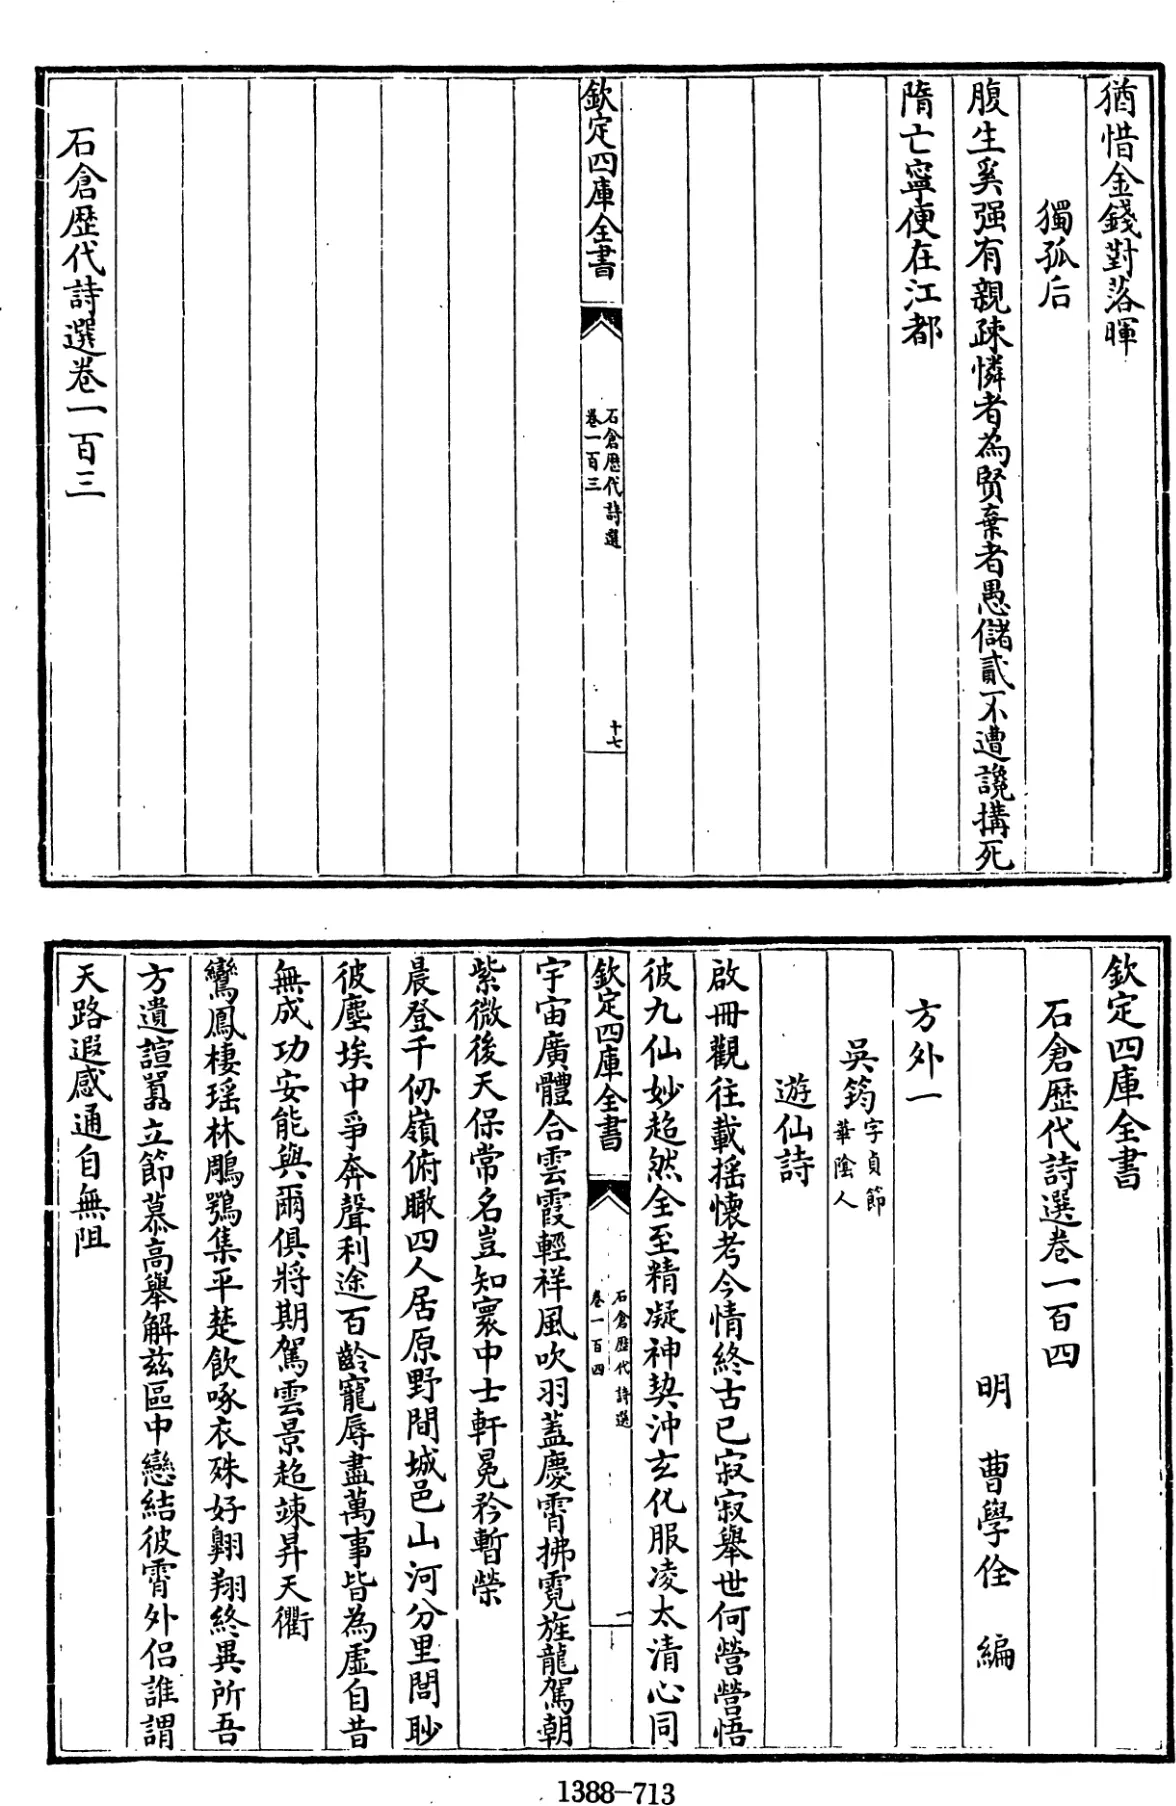 猶惜金錢對落暉
獨孤后
腹生奚强有親疎憐者為賢棄者愚儲貳不遭讒搆死
隋亡寧便在江都
欽定四庫全書
石倉歷代詩選
卷一百三
十七
石倉歷代詩選卷一百三
欽定四庫全書
石倉歷代詩選卷一百四
明 曹學佺 編
方外一
吳筠字貞節
華陰人
遊仙詩
啟冊觀往載搖懷考今情終古已寂寂舉世何營營悟
彼九仙妙超然全至精凝神契沖玄化服凌太清心同
欽定四庫全書
石倉歷代詩選
卷一百四
一
宇宙廣體合雲霞輕祥風吹羽蓋慶霄拂霓旌龍駕朝
紫微後天保常名豈知寰中士軒冕矜暫榮
晨登千仞嶺俯瞰四人居原野間城邑山河分里閭眇
彼塵埃中爭奔聲利途百齡寵辱盡萬事皆為虛自昔
無成功安能與爾俱將期駕雲景超竦昇天衢
鸞鳳棲瑤林鵰鶚集平楚飲啄衣殊好翱翔終異所吾
方遺諠囂立節慕高舉解兹區中戀結彼霄外侶誰謂
天路遐感通自無阻
1388–713